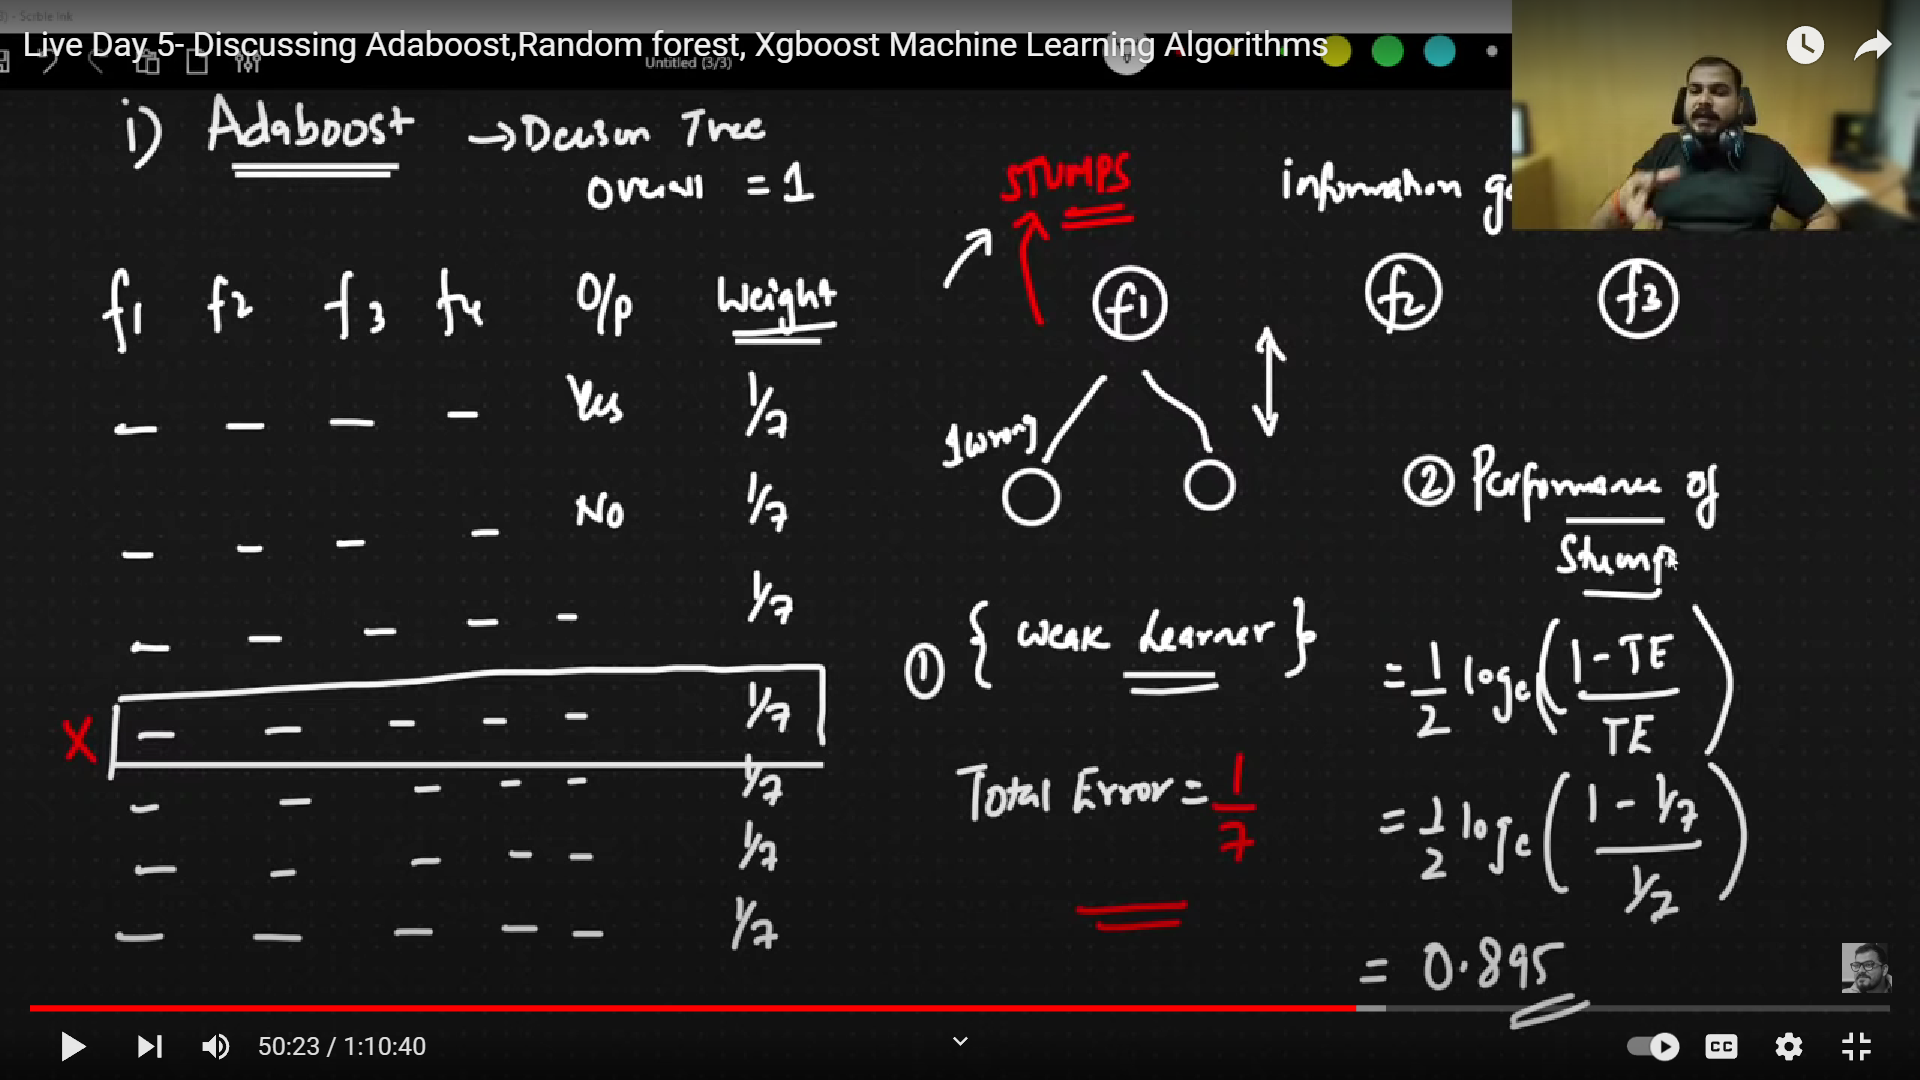 3) - Scrble Ink
Live Day 5- Discussing Adaboost,Random forest, Xgboost Machine Learning Algorithms
Untitled (3/3)
i) Adaboost → Decision Tree
Overall = 1
STUMPS
information ga
f1 f2 f3 f4 O/p Weight
f1 f2 f3
Yes 1/7
No 1/7
1/7
1/7
1/7
1/7
1/7
X
1 wrong
① { Weak Learner }
Total Error = 1/7
② Performance of
Stump
= 1/2 loge (1-TE / TE)
= 1/2 loge (1 - 1/7 / 1/7)
= 0.895
50:23 / 1:10:40
CC